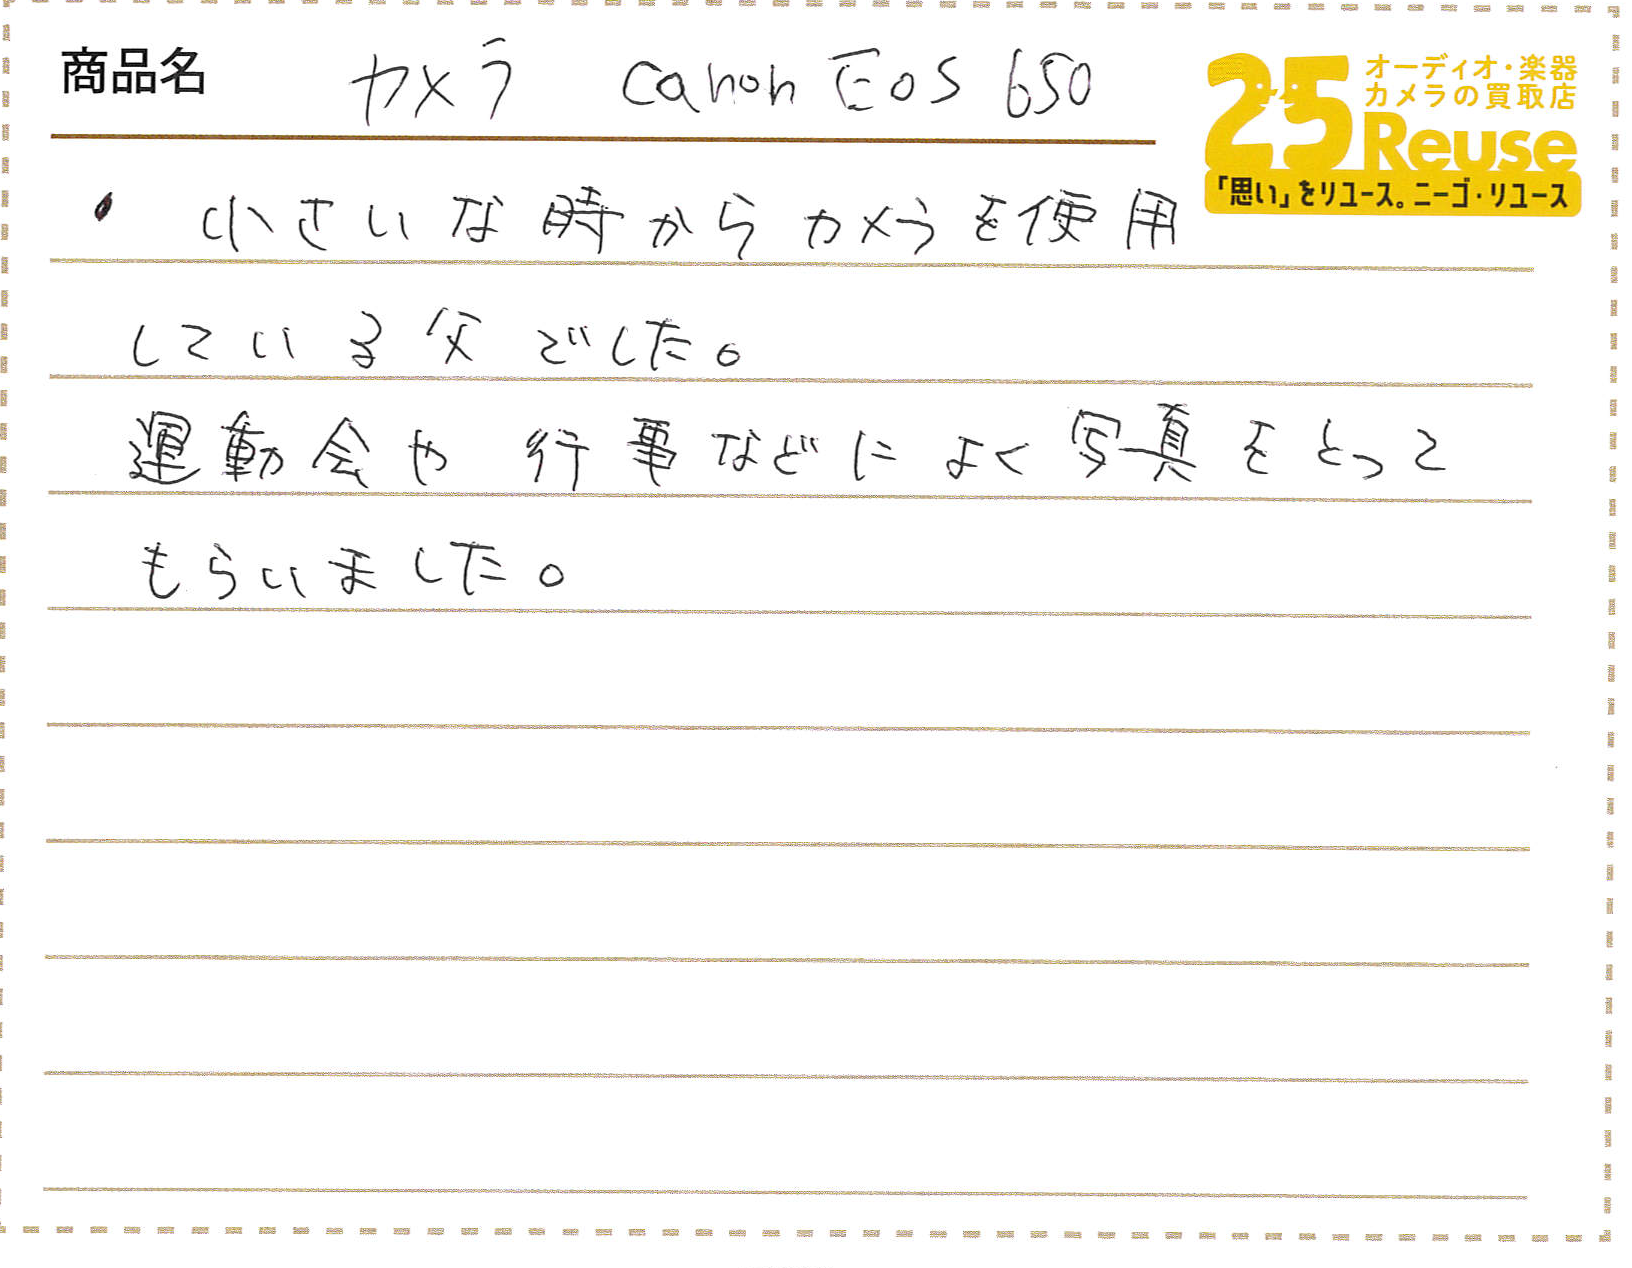 商品名 カメラ Canon EOS 650
25 オーディオ・楽器
カメラの買取店
Reuse
「思い」をリユース。ニーゴ・リユース
・ 小さいな時からカメラを使用
している父でした。
運動会や行事などによく写真をとって
もらいました。